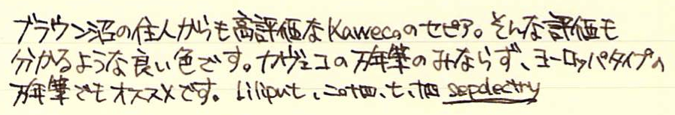 ブラウン沼の住人からも高評価なKawecoのセピア。そんな評価も
分かるような良い色です。カヴェコの万年筆のみならず、ヨーロッパタイプの
万年筆でもオススメです。Liliput、